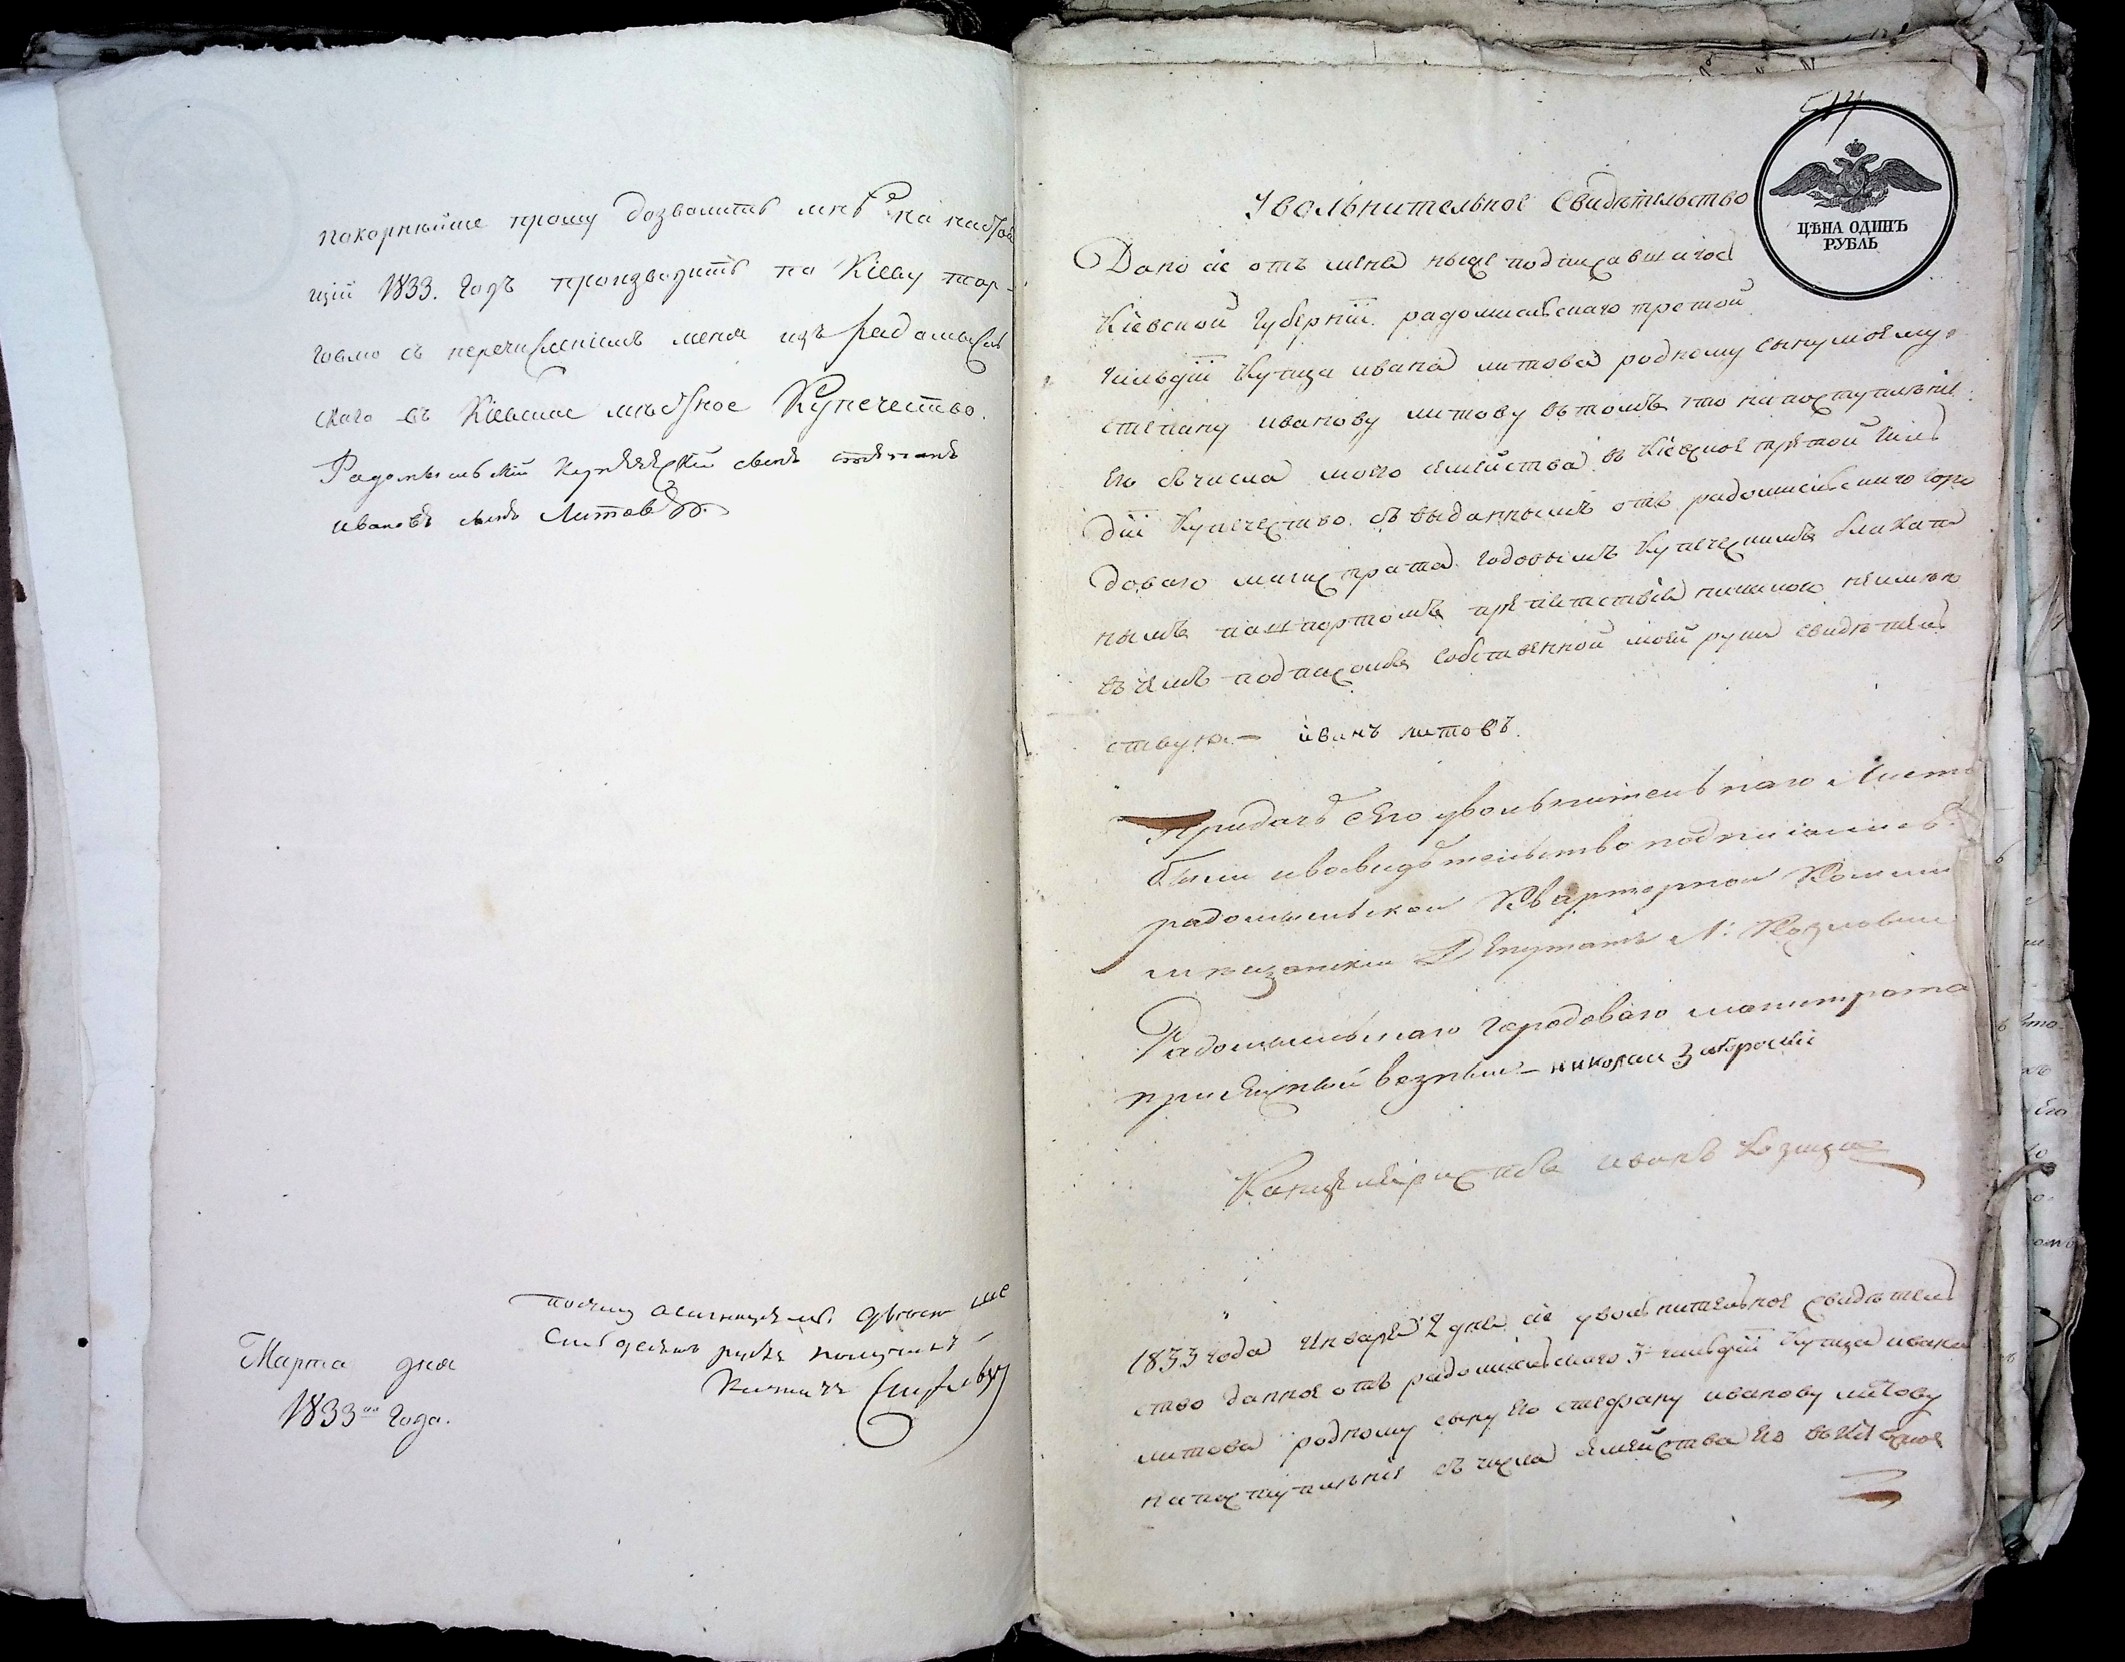 покорнѣйше прошу дозволить мнѣ на настоя
щій 1833. Годъ производить по Кіеву тор-
говлю съ перечисленіемъ меня изъ Радомысль
скаго въ Кіевское мѣстное Купечество.
Радомысльскій Купеческій сынъ степанъ
ивановъ сынъ Литовъ
пошлину двѣсти
рубля получилъ
Марта дня
1833го Года.
514
ЦѢНА ОДИНЪ
РУБЛЬ
Увольнительное Свидѣтельство
Дано сіе отъ меня ниже подписавшагося
Кіевской Губерніи радомисльскаго третой
гильдіи Купца ивана литова родному сыну моему
степану иванову литову втомъ что напоступленіе
Его съчисла моего семейства въ Кіевское третой гиль
діи Купечество съ выданнымъ отъ радомисльскаго горо
доваго магистрата годовымъ Купеческимъ плакат
нымъ пашпортомъ препятствія никакого неимѣю
въчемъ подписомъ собственной моей руки свидѣтель
ствую — иванъ литовъ.
Придачѣ сего увольнительнаго Листа
были ивосвидѣтельство подписались
радомысльской Квартирной Комми
Депутатъ
Радомысльскаго Городоваго магистрата
присяжный возный — николай
Канцеляристъ иванъ
1833 года Января 2 дня сіе увольнительное свидѣтель
ство данное отъ радомисльскаго 3 гильдіи Купца ивана
литова родному сыну Его стефану иванову литову
напоступленіе съ числа семейства Его въ Кіевское